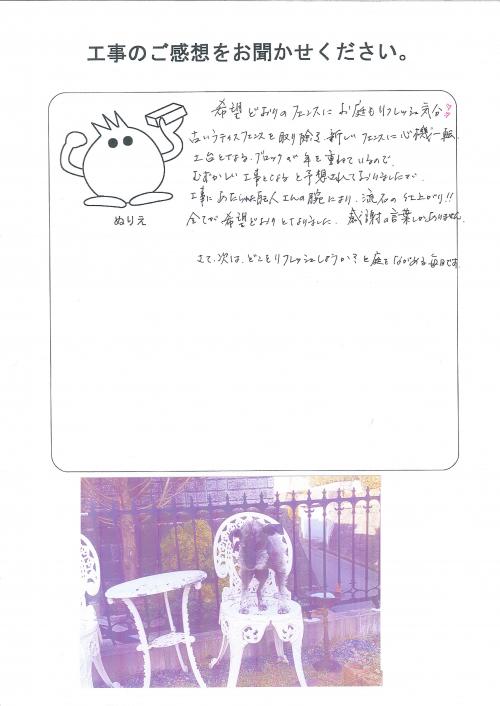 工事のご感想をお聞かせください。
希望どおりのフェンスにお庭もリフレッシュ気分
古いラティスフェンスを取り除き、新しいフェンスに心機一転、
土台となるブロックが年を重ねているので、
むずかしい工事となると予想されておりましたが、
工事にあたられた職人さんの腕により、流石の仕上がり!!
全てが希望どおりとなりました。感謝の言葉しかありません。
さて、次は、どこをリフレッシュしようか?と庭をながめる毎日です。
ぬりえ